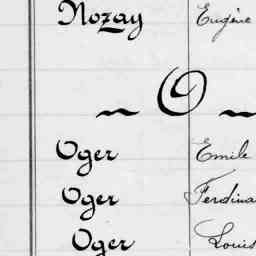 Nozay Eugène
~ O ~
Oger Emile
Oger Ferdina
Oger Louis